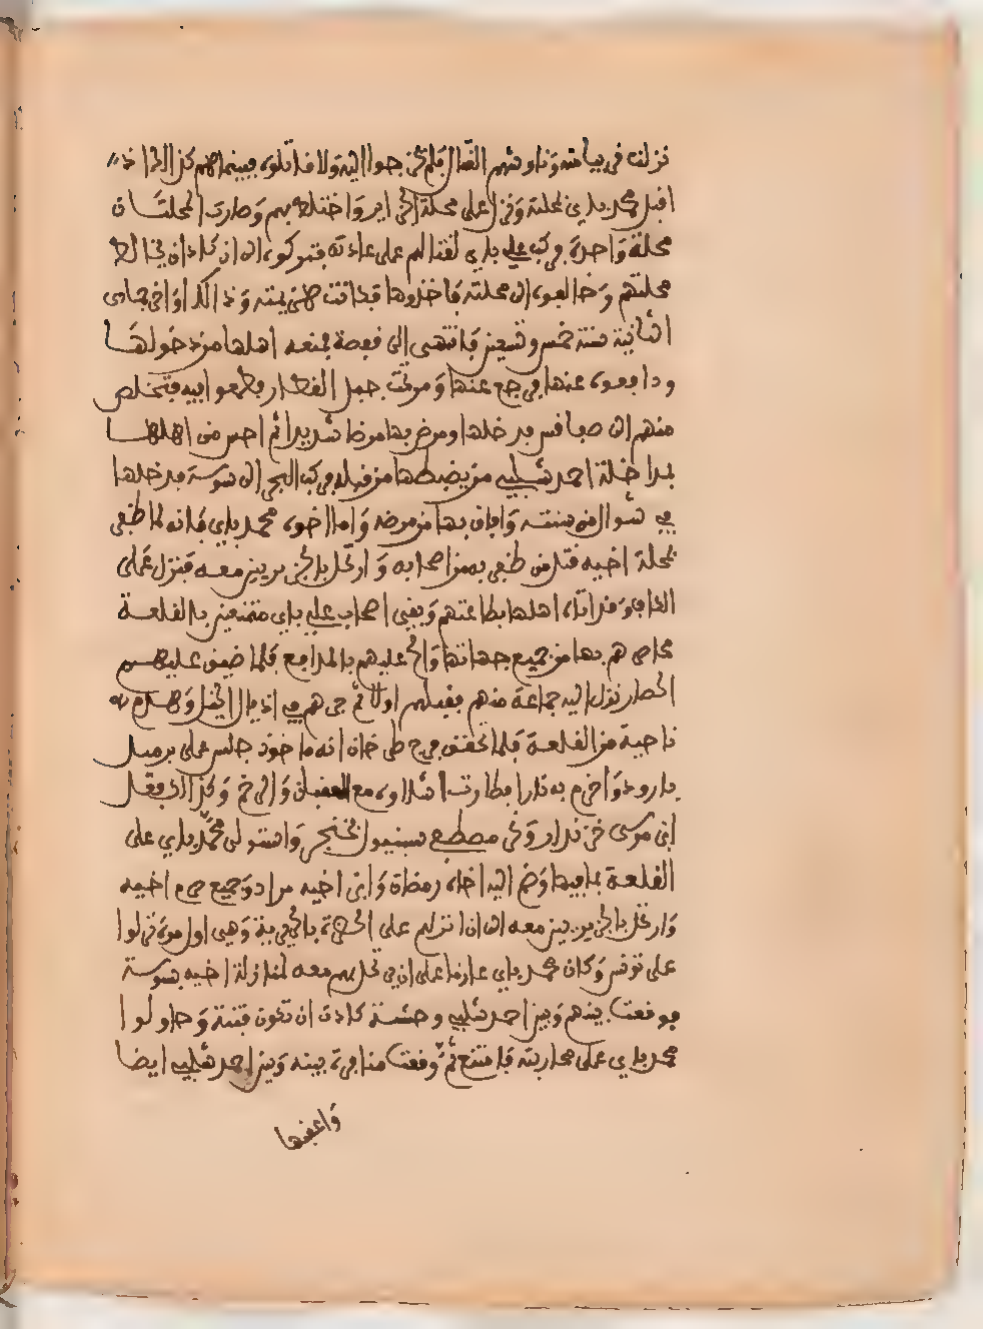 نزلت في بياشه وناوشهم القتال فلم يخرجوا اليه ولا قاتلوه فبينماهم كذالك اذ
اقبل محمد باي بمحلته ونزل على محلة الجزاير واختلط بهم وصارت المحلتان
محلة واحدة فركب علي باي لقتالهم على عادته فتركوه الى ان كاد ان يخالط
محلتهم وخالفوه الى محلته فاخذوها فكانت هزيمته وذالك اواخر جمادى
الثانية سنة خمس وتسعين فانتهى الى قفصة فمنعه اهلها من دخولها
ودافعوه عنها فرجع عنها ومر تحت جبل القطار فطمعوا فيه فتخلص
منهم الى صفاقس فدخلها ومرض بها مرضا شديدا ثم احس من اهلها
بمداخلة احمد شلبي من يضبطها من قبله فركب البحر الى سوسة فدخلها
في شوال من سنته وافاق بها من مرضه واما اخوه محمد باي فانه لما ظفر
بمحلة اخيه قتل من ظفر به من اصحابه وارتحل بالجزيريين معه فنزل على
الكاف وقد اتاه اهلها بطاعتهم وبقي اصحاب علي باي متمنعين بالقلعة
فحاصرهم بها من جميع جهاتها والح عليهم بالمدافع فلما ضيق عليهم
الحصار نزل اليه جماعة منهم فقبلهم اولا ثم جرهم في اذيال الخيل وهدم
ناحية من القلعة فلما تحقق فرج طرخان انه ماخوذ جلس على برميل
بارود واضرم به نارا فطارت اشلاوه مع العقبان والرخم وكذالك فعل
ابن موسى خزندار ونحر مصطفى سبنيول بخنجر واستولى محمد باي على
القلعة بما فيها وضم اليه اخاه رمضان وابن اخيه مراد وجميع حرم اخيه
وارتحل بالجزيريين معه الى ان انزلهم على الحجرة بالحريرية وهي اول مرة نزلوا
على تونس وكان محمد باي عازما على ان يرتحل بهم معه لمنازلة اخيه بسوسة
فوقعت بينهم وبين احمد شلبي وحشة كادت ان تكون فتنة وحاولوا
محمد باي على محاربته فامتنع ثم وقعت منافرة بينه وبين احمد شلبي ايضا
واعقبها